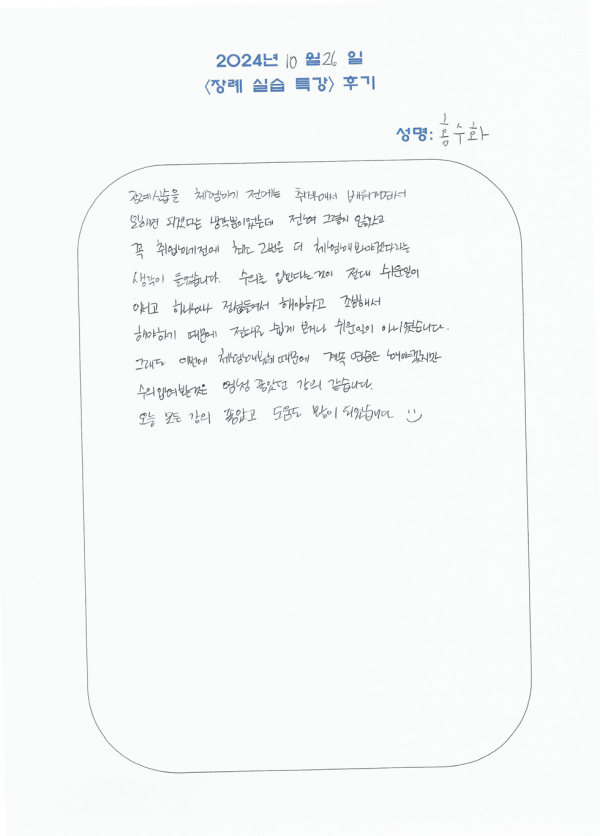 2024년 10 월 26 일
〈장례 실습 특강〉 후기
성명: 홍수화
장례실습을 체험하기 전에는 취업해서 배워가면서
일하면 되겠다는 생각뿐이었는데 전혀 그렇지 않았고
꼭 취업하기전에 최소 2번은 더 체험해봐야겠다라는
생각이 들었습니다. 수의를 입힌다는것이 절대 쉬운일이
아니고 하나하나 정성들여서 해야하고 조심해서
해야하기 때문에 절대로 쉽게 보거나 쉬운일이 아니었습니다.
그래도 이번에 체험해봤기때문에 계속 연습은 해야겠지만
수의입혀본것은 엄청 좋았던 강의 같습니다.
오늘 모든 강의 좋았고 도움도 많이 되었습니다 :)